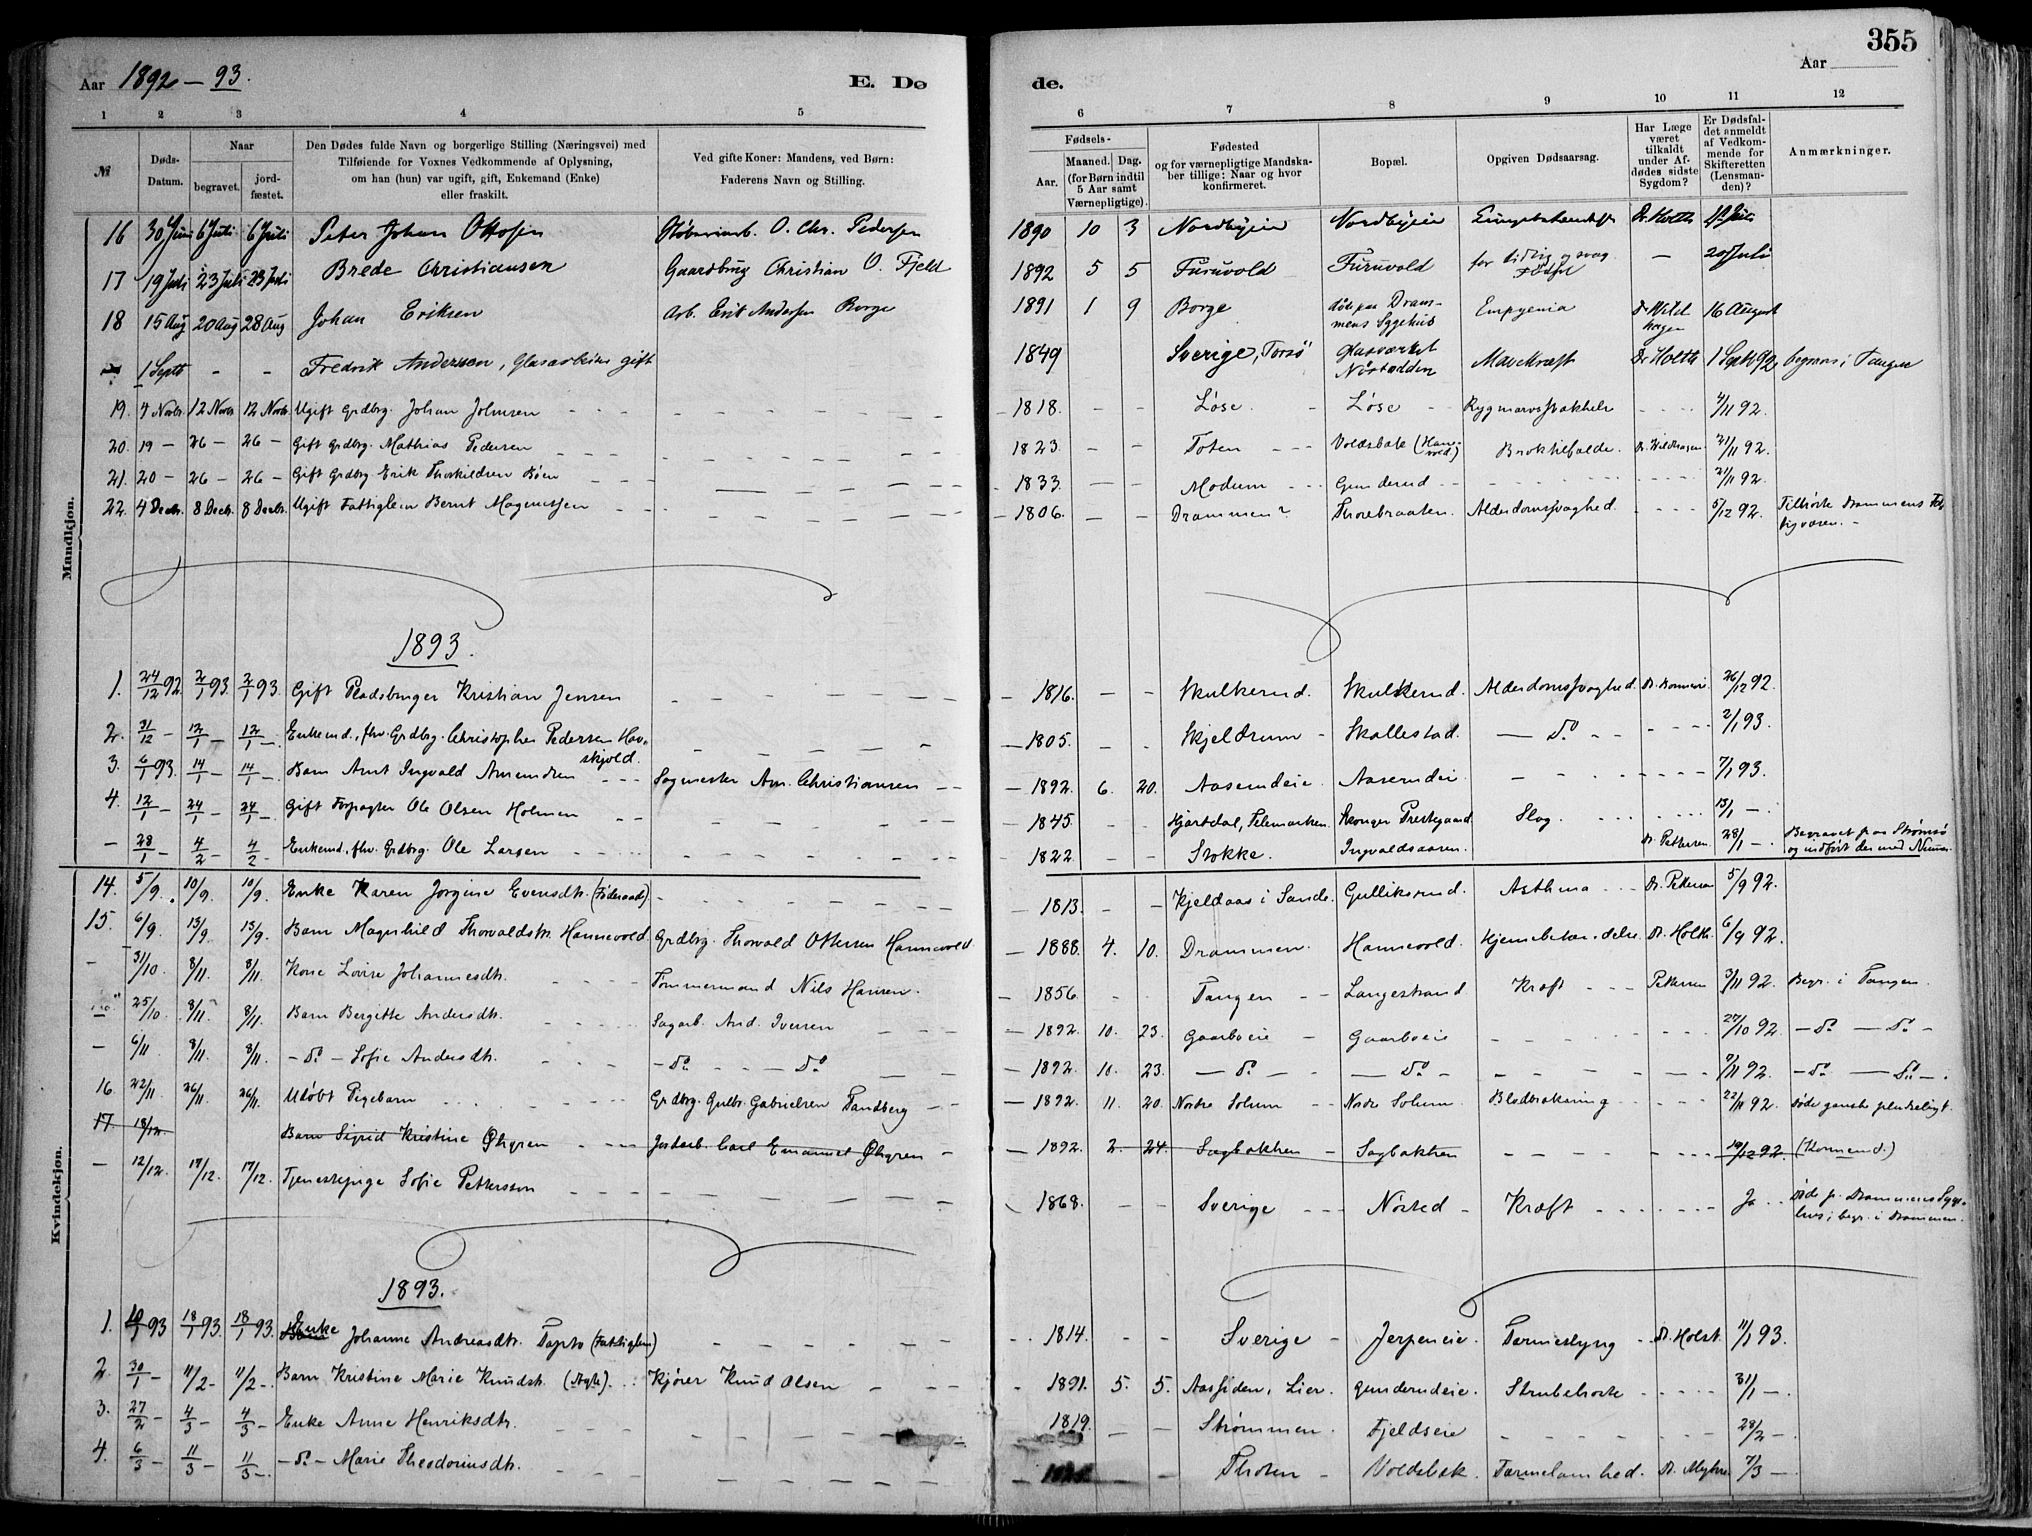 355
Aar 1892 – 93. E. Dø de. Aar
1 2 3 4 5 6 7 8 9 10 11 12
№ Døds-Datum. Naar begravet. jord-fæstet.
Den Dødes fulde Navn og borgerlige Stilling (Næringsvei) med
Tilføiende for Voxnes Vedkommende af Oplysning,
om han (hun) var ugift, gift, Enkemand (Enke)
eller fraskilt.
Ved gifte Koner: Mandens, ved Børn:
Faderens Navn og Stilling.
Fødsels-
Aar. Maaned. Dag. (for Børn indtil 5 Aar samt Værnepligtige).
Fødested
og for værnepligtige Mandska-
ber tillige: Naar og hvor
konfirmeret.
Bopæl.
Opgiven Dødsaarsag.
Har Læge været tilkaldt under Af-dødes sidste Sygdom?
Er Dødsfal-det anmeldt af Vedkom-mende for Skifteretten (Lensman-den)?
Anmærkninger.
Mandkjøn.
16 30 Juni 6 Juli 6 Juli Peter Johan Ottosen O. Chr. Pedersen 1890 10 3 Nordbyeie Nordbyeie Dr. Holth
17 19 Juli 23 Juli 23 Juli Brede Christiansen Gaardbrug Christian O. Fjeld 1892 5 5 Furuvold Furuvold for tidlig og svag Fødsel — 20 Juli
18 15 Aug 20 Aug 28 Aug Johan Eriksen Arb. Erik Andersen Borge 1891 1 9 Borge Drammens Sygehus Empyemia 16 August
1 Septb - - Fredrik Andersson, Glasarbeider gift 1849 Sverige, Torsö Glasværket Nøstodden Mavekræft Dr Holth 1 Septb 92 begraves i Tangen
19. 4 Novbr. 12 Novb. 12 Novbr. Ugift Grdbrg. Johan Johnsen 1818. Løse. Løse Rygmarvssvakhed 4/11 92.
20. 19 — 26 — 26 — Gift Grdbrg. Mathias Pedersen 1823. Toten Voldsbæk (Hannevold) Broktilfælde. Dr. Wildhagen 21/11 92.
21. 20 — 26 — 26 — Gift Grdbrg Erik Thorkildsen Bøen 1833. Modum Gunderud 21/11 92.
22. 4 Decbr. 8 Decbr. 8 Decbr. Ugift Fattiglem Bernt Magnussen 1806. Drammen? Thorebraaten. Alderdomssvaghed. 5/12 92. Tilhørte Drammens Fattigvæsen.
1893.
1. 24/12 92. 2/1 93. 2/1 93. Gift Pladsbruger Kristian Jensen 1816. Skulkerud. Skulkerud. Alderdomssvaghed. 26/12 92.
2. 31/12 — 12/1 — 12/1 — Enkemd., fhv. Grdbrg. Christopher Pedersen Hav-
skjold. 1805. Skjeldrum Skallestad. — Do 2/1 93.
3. 6/1 93. 14/1 — 14/1 — Barn Arnt Ingvald Arnesen Sagmester Arn. Christiansen 1892. 6. 20. Aaserudeie. Aaserudei 7/1 93.
4. 12/1 — 24/1 — 24/1 — Gift Forpagter Ole Olsen Holmen 1845. Hjartdal, Telemarken. Skouger Prestegaard Slag. 13/1 —
— 28/1 — 4/2 — 4/2 — Enkemd., fhv. Grdbrg. Ole Larsen 1822. Stokke. Ingvaldsaasen. Dr. Pettersen 28/1 — Begravet paa Strømsø og indført der med Numer.
Kvindekjøn.
14. 5/9. 10/9. 10/9. Enke Karen Jorgine Evensdtr. (Føderaad) 1813. Kjeldaas i Sande. Gulliksrud. Asthma Dr. Pettersen 5/9 92.
15. 6/9. 13/9. 13/9. Barn Magnhild Thorvaldsdtr. Hannevold Grdbrg. Thorvald Ottersen Hannevold 1888. 4. 10. Drammen. Hannevold. Hjernebetændelse. Dr. Holth. 6/9 92.
— 31/10. 8/11. 8/11. Kone Lovise Johannesdtr. Tømmermand Nils Hansen. 1856. Tangen Langestrand Kræft Pettersen 3/11 92. Begr. i Tangen.
25/10. 8/11. 8/11. Barn Bergitte Andersdtr. Sagarb. And. Iversen 1892. 10. 23. Gaarboeie Gaarboeie 27/10 92. — Do — Do —
— 6/11. 8/11. 8/11. — Do — Sofie Andersdtr. — Do — Do 1892. 10. 23. — Do — — Do — 9/11 92. — Do — Do —
16. 22/11. 26/11. 26/11. Udøbt Pigebarn Grdbrg. Gulbr. Gabrielsen Tandberg 1892. 11. 20. Nordre Solum Nordre Solum. Blodbrækning 22/11 92. Døde ganske pludseligt.
17. 18/12. Barn Sigrid Kristine Øhgren Jordarb. Carl Emanuel Øhgren 1892. 2. 24. Sagbakken Sagbakken 19/12 92. (Kommend.)
— 12/12. 17/12. 17/12. Tjenestepige Sofie Pettersson 1868. Sverige Nøsted Kræft Ja Døde p. Drammens Syge-
hus; begr. i Drammen.
1893.
1. 10/1 93 18/1 93. 18/1 93. Enke Johanne Andreasdtr. Topto (Fattiglem) 1814. Sverige Jerpeneie. Tarmeslyng Dr. Holst. 11/1 93.
2. 30/1 — 11/2 — 11/2 — Barn Kristine Marie Knudsdtr. Kjører Knud Olsen 1891. 5. 5. Aassiden, Lier. Gunderudeie. Strubehoste 31/1 —
3. 27/2 — 4/3 — 4/3 — Enke Anne Henriksdtr. 1819. Strømmen. Fjeldseie 28/2 —
4. 6/3 — 11/3 — 11/3 — — Do — Marie Theodoriusdtr. Thoten Voldsbæk Tarmelamhed. Dr. Myhre 7/3 —